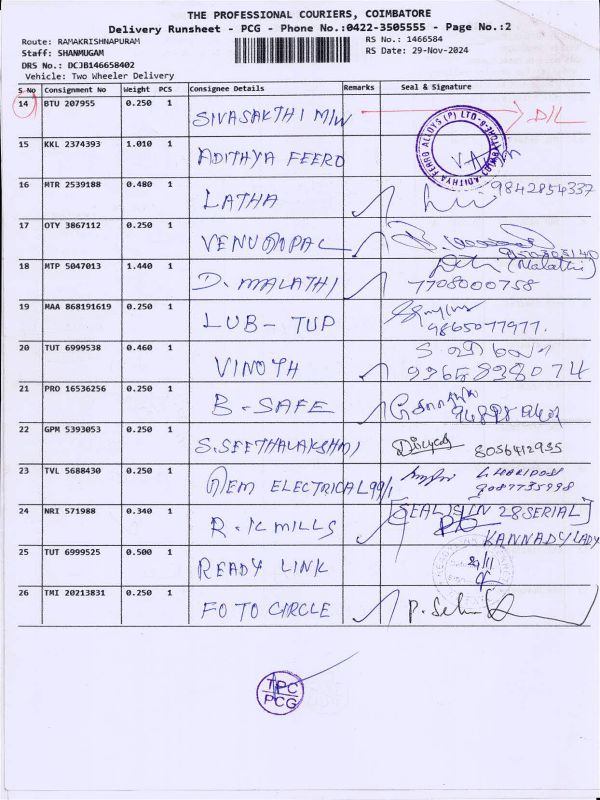 THE PROFESSIONAL COURIERS, COIMBATORE
Delivery Runsheet - PCG - Phone No.:0422-3505555 - Page No.:2
Route: RAMAKRISHNAPURAM RS No.: 1466584
Staff: SHANMUGAM RS Date: 29-Nov-2024
DRS No.: DCJB146658402
Vehicle: Two Wheeler Delivery
S No Consignment No Weight PCS Consignee Details Remarks Seal & Signature
14 BTU 207955 0.250 1 SIVASAKTHI MIW D/L
15 KKL 2374393 1.010 1 ADITHYA FEERO
16 MTR 2539188 0.480 1 LATHA 9842854337
17 OTY 3867112 0.250 1 VENUGOPAL
18 MTP 5047013 1.440 1 D. MALATHI (Malathi)
7708000758
19 MAA 868191619 0.250 1 LUB - TUP
9865077977.
20 TUT 6999538 0.460 1 VINOTH
21 PRO 16536256 0.250 1 B-SAFE
22 GPM 5393053 0.250 1 S.SEETHALAKSHMI 8056412935
23 TVL 5688430 0.250 1 AEM ELECTRICAL 99/1 G HARIDOSS
9087735998
24 NRI 571988 0.340 1 R.K MILLS [SEAL IS IN 28 SERIAL]
KANNADY LADY
25 TUT 6999525 0.500 1 READY LINK 29/11
26 TMI 20213831 0.250 1 FOTO CIRCLE
TPC
PCG